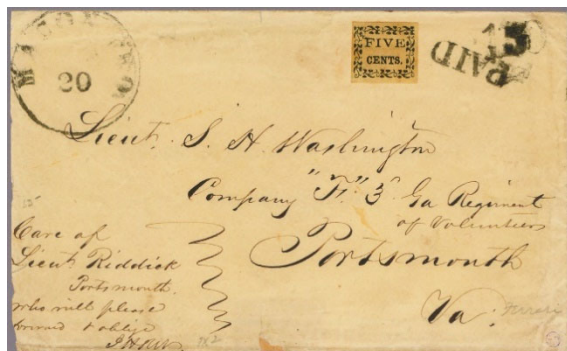 20
FIVE
CENTS.
PAID
Lieut. S. H. Washington
Company "F." 3d Ga Regiment
of Volunteers
Portsmouth
Va.
Care of
Lieut Riddick
Portsmouth.
who will please
forward & oblige